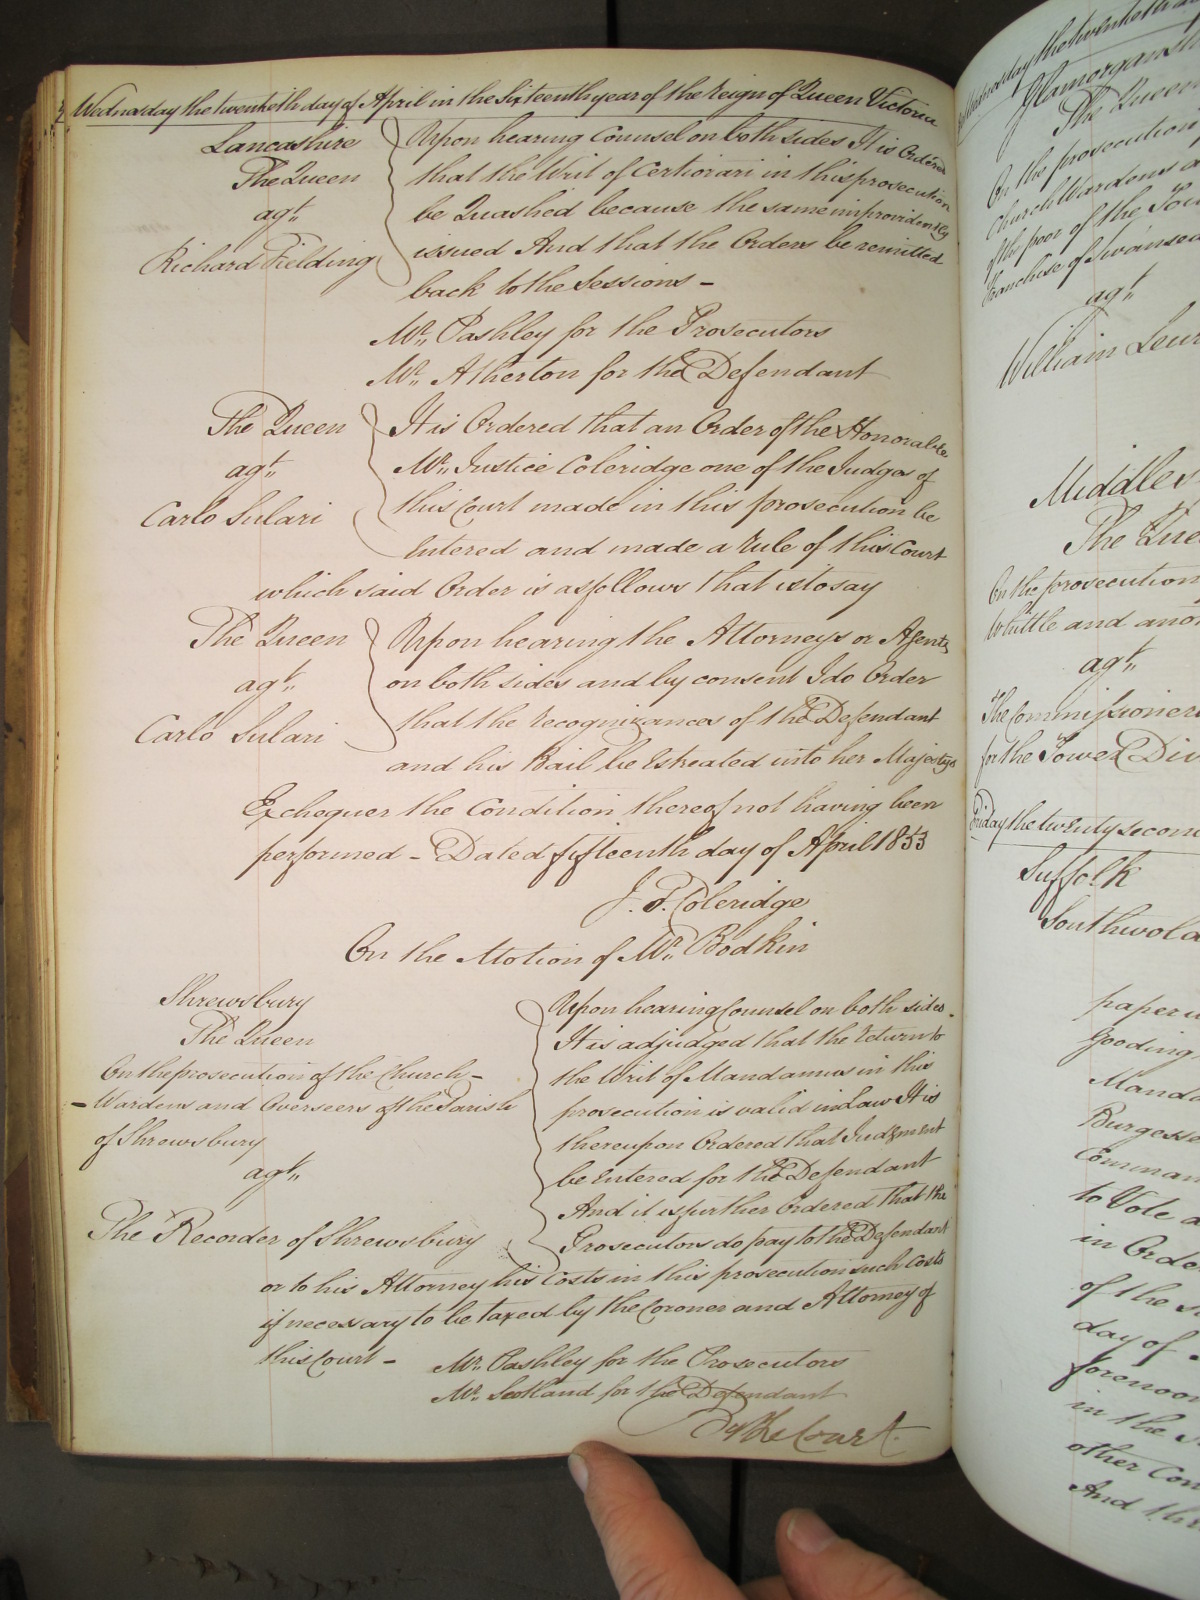 Wednesday the twentieth day of April in the Sixteenth year of the Reign of Queen Victoria
Lancashire
The Queen
agt.
Richard Fielding
Upon hearing Counsel on both sides It is Ordered
that the Writ of Certiorari in this prosecution
be Quashed because the same improvidently
issued And that the Orders be remitted
back to the Sessions -
Mr. Pashley for the Prosecutors
Mr. Atherton for the Defendant
The Queen
agt.
Carlo Sulari
It is Ordered that an Order of the Honorable
Mr. Justice Coleridge one of the Judges of
this Court made in this prosecution be
Entered and made a Rule of this Court
which said Order is as follows that is to say
The Queen
agt.
Carlo Sulari
Upon hearing the Attorneys or Agents
on both sides and by consent I do Order
that the recognizances of the Defendant
and his Bail be Estreated into her Majestys
Exchequer the Condition thereof not having been
performed - Dated fifteenth day of April 1853
J. T. Coleridge
On the Motion of Mr. Bodkin
Shrewsbury
The Queen
On the prosecution of the Church-
-Wardens and Overseers of the Parish
of Shrewsbury
agt.
The Recorder of Shrewsbury
Upon hearing Counsel on both sides.
It is adjudged that the return to
the Writ of Mandamus in this
prosecution is valid in Law It is
thereupon Ordered that Judgment
be Entered for the Defendant
And it is further Ordered that the
Prosecutors do pay to the Defendant
or to his Attorney his Costs in this prosecution such Costs
if necessary to be taxed by the Coroner and Attorney of
this Court -
Mr. Pashley for the Prosecutors
Mr. Scotland for the Defendant
By the Court.
the twentieth
Glamorgansh
The Queen
On the prosecution
Church Wardens
of the poor of the
Franchise of Swansea
agt.
William
The
On the prosecution
Whittle and
agt.
The Commissioners
for the Tower
Friday the twenty second
Suffolk
Southwold
Gooding
to Vote
in
of the
day of
in the
other
And